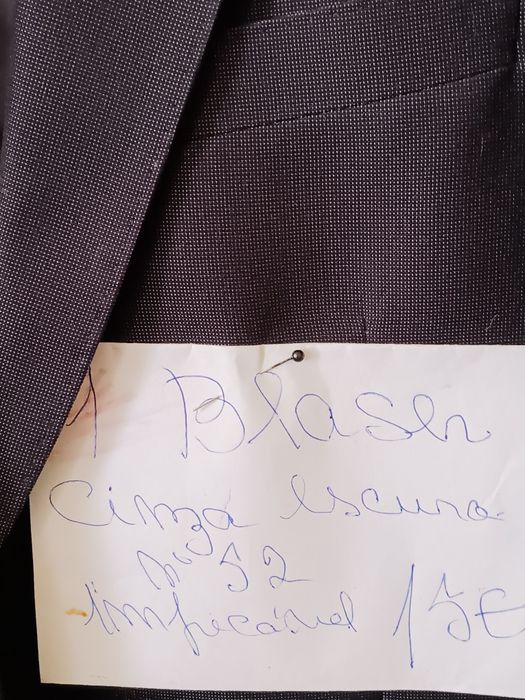 1 Blaser
cinza escura
nº 52
Impecável 15€